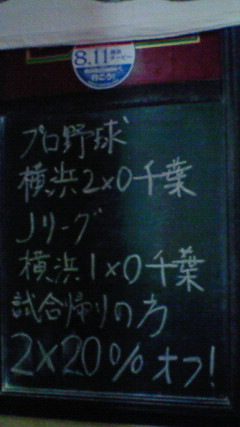 8.11
行こう!
プロ野球
横浜2×0千葉
Jリーグ
横浜1×0千葉
試合帰りの方
2×20%オフ!